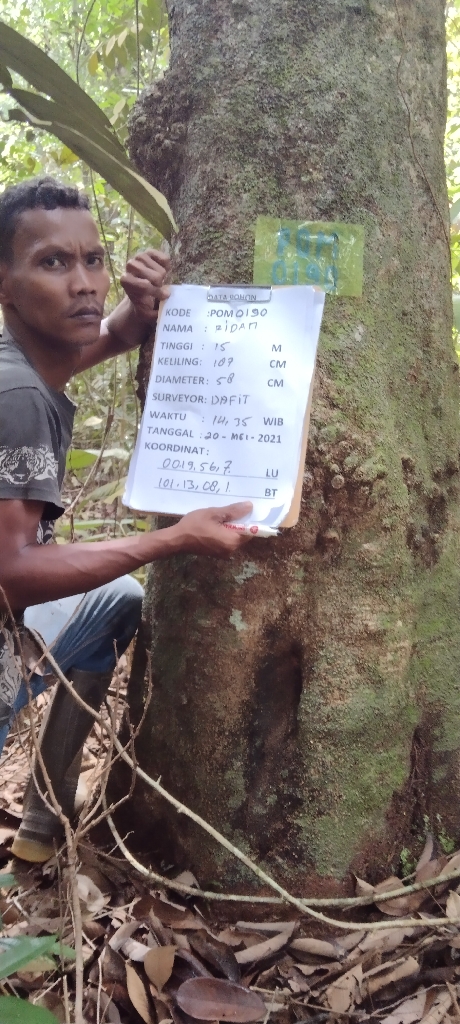 POM
0190
DATA POHON
KODE :POM0190
NAMA : RIDAM
TINGGI : 15 M
KELILING: 107 CM
DIAMETER: 58 CM
SURVEYOR: DAFIT
WAKTU : 14,35 WIB
TANGGAL : 20 - MEI - 2021
KOORDINAT:
0019,56,7 LU
101.13,08,1 BT